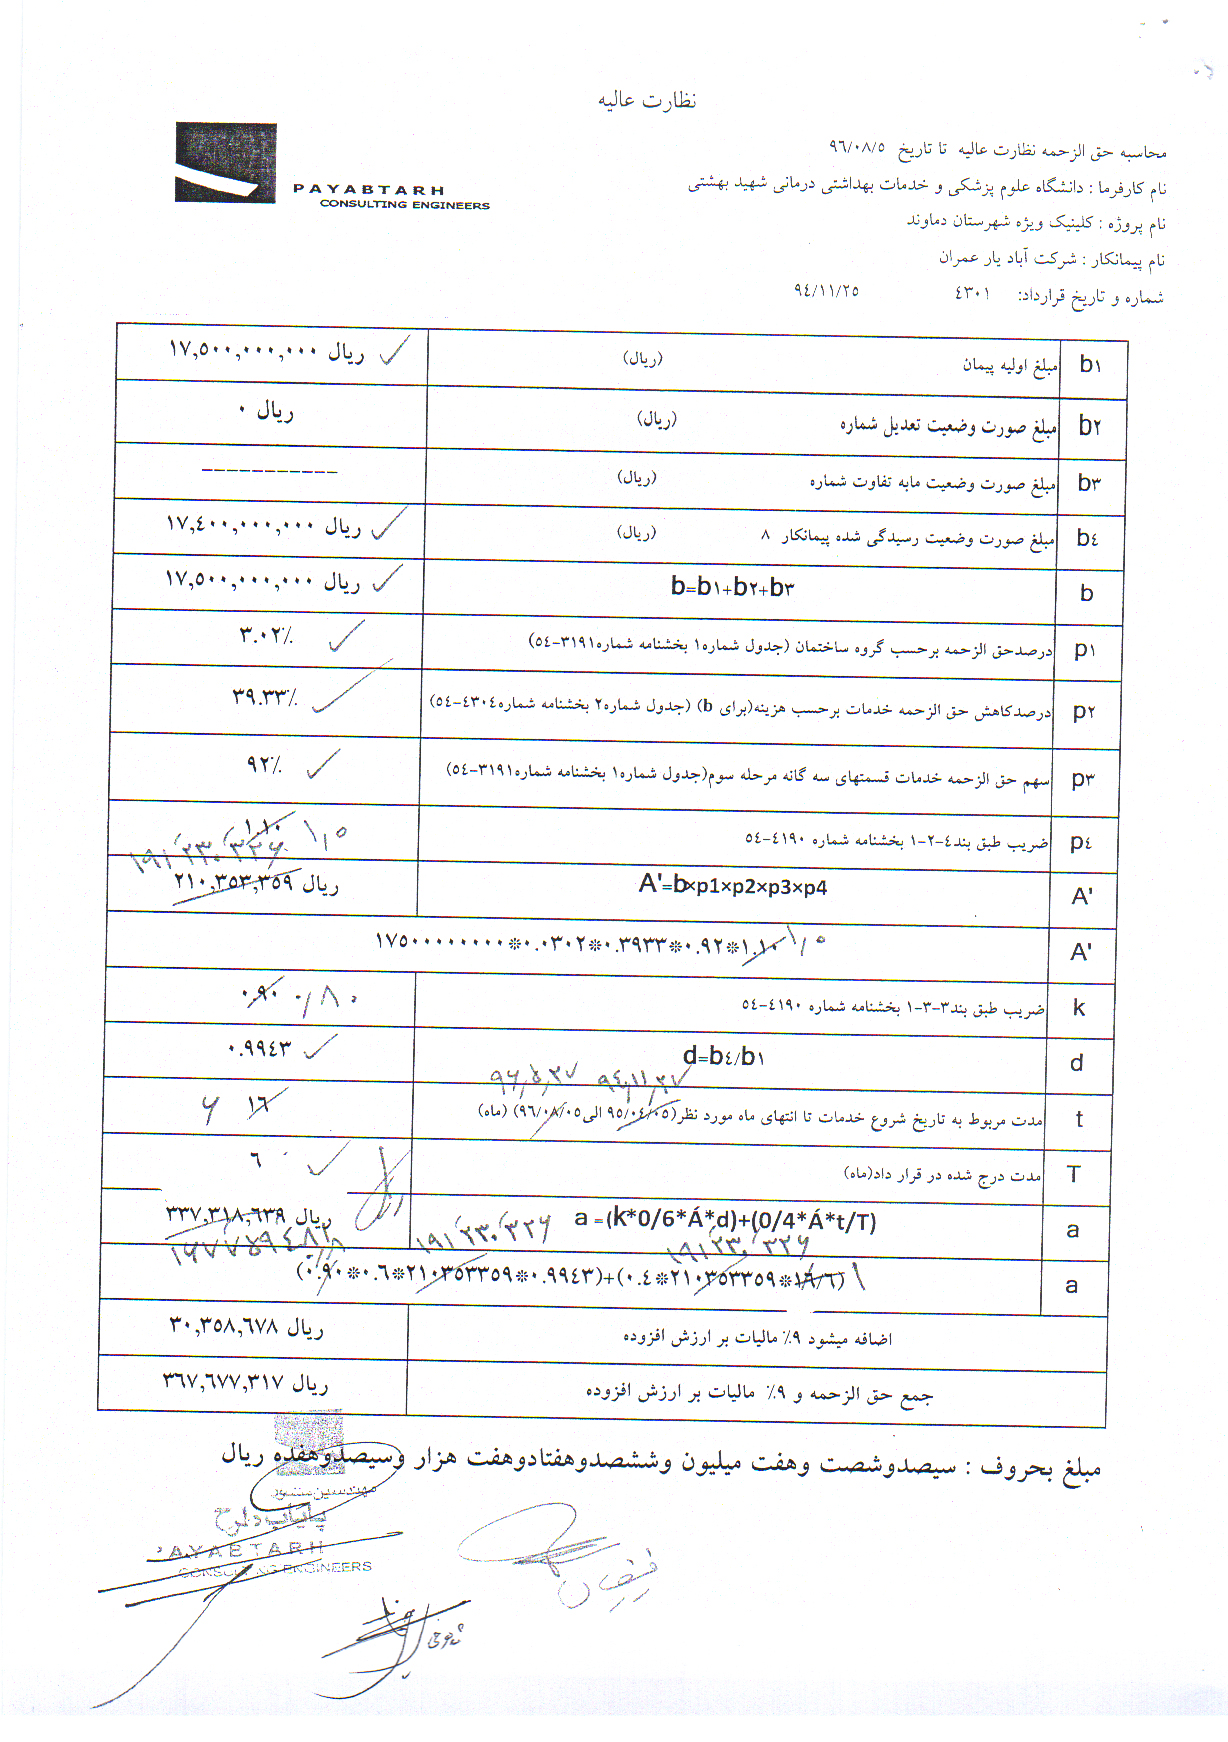 نظارت عالیه
PAYABTARH
CONSULTING ENGINEERS
محاسبه حق الزحمه نظارت عالیه تا تاریخ ۹۶/۰۸/۵
نام کارفرما : دانشگاه علوم پزشکی و خدمات بهداشتی درمانی شهید بهشتی
نام پروژه : کلینیک ویژه شهرستان دماوند
نام پیمانکار : شرکت آباد یار عمران
شماره و تاریخ قرارداد: ٤٣٠١ ٩٤/١١/٢٥
b۱ مبلغ اولیه پیمان (ریال) ۱۷,۵۰۰,۰۰۰,۰۰۰ ریال
b۲ مبلغ صورت وضعیت تعدیل شماره (ریال) ۰ ریال
b۳ مبلغ صورت وضعیت مابه تفاوت شماره (ریال) -----------
b٤ مبلغ صورت وضعیت رسیدگی شده پیمانکار ۸ (ریال) ۱۷,٤۰۰,۰۰۰,۰۰۰ ریال
b b=b۱+b۲+b۳ ۱۷,۵۰۰,۰۰۰,۰۰۰ ریال
p۱ درصدحق الزحمه برحسب گروه ساختمان (جدول شماره۱ بخشنامه شماره۳۱۹۱-۵٤) ۳.۰۲٪
p۲ درصدکاهش حق الزحمه خدمات برحسب هزینه(برای b) (جدول شماره۲ بخشنامه شماره٤۳۰٤-۵٤) ۳۹.۳۳٪
p۳ سهم حق الزحمه خدمات قسمتهای سه گانه مرحله سوم(جدول شماره۱ بخشنامه شماره۳۱۹۱-۵٤) ۹۲٪
p٤ ضریب طبق بند٤-۲-۱ بخشنامه شماره ٤۱۹۰-۵٤ ۱.۱۰ ۱/۰
۱۹۱٬۲۳۰٬۳۲۶
A' A'=b×p1×p2×p3×p4 ۲۱۰,۳۵۳,۳۵۹ ریال
A' ۱۷۵۰۰۰۰۰۰۰۰*۰.۰۳۰۲*۰.۳۹۳۳*۰.۹۲*۱.۱۰ ۱/۰
k ضریب طبق بند۳-۳-۱ بخشنامه شماره ٤۱۹۰-۵٤ ۰.۹۰ ۰/۸۰
d d=b٤/b۱ ۰.۹۹٤۳
۹۴,۱۱,۲۷ ۹۶,۵,۲۷
t مدت مربوط به تاریخ شروع خدمات تا انتهای ماه مورد نظر(۹۵/۰٤/۰۵ الی۹۶/۰۸/۰۵) (ماه) ۱٦ ۶
T مدت درج شده در قرار داد(ماه) ٦
a a =(k*0/6*Á*d)+(0/4*Á*t/T) ۳۳۷,۳۱۸,٦۳۹ ریال
۱۹۱٬۲۳۰٬۳۲۶ ۱۹۱٬۲۳۰٬۳۲۶
a (۰.۹۰*۰.٦*۲۱۰۳۵۳۳۵۹*۰.۹۹٤۳)+(۰.٤*۲۱۰۳۵۳۳۵۹*۱٦/٦) ۱
اضافه میشود ۹٪ مالیات بر ارزش افزوده ۳۰,۳۵۸,٦۷۸ ریال
جمع حق الزحمه و ۹٪ مالیات بر ارزش افزوده ۳٦۷,٦۷۷,۳۱۷ ریال
مبلغ بحروف : سیصدوشصت وهفت میلیون وششصدوهفتادوهفت هزار وسیصدوهفده ریال
مهندسین مشاور
پایاب طرح
PAYABTARH
CONSULTING ENGINEERS